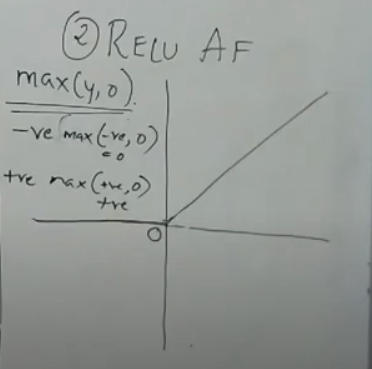 ② RELU AF
max(y, 0).
-ve max(-ve, 0)
= 0
+ve max(+ve, 0)
+ve
0